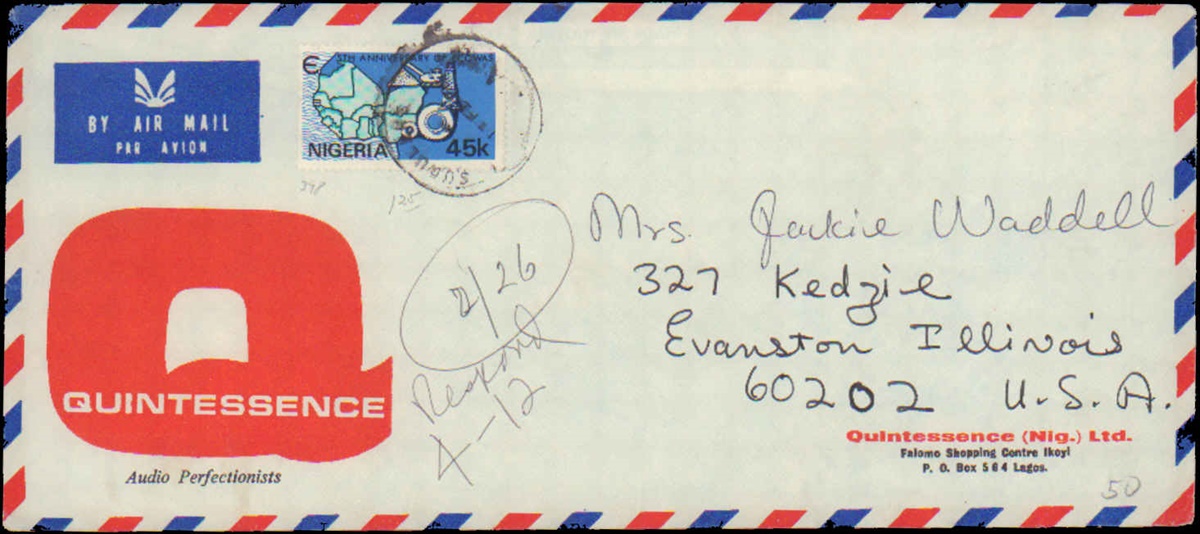 BY AIR MAIL
PAR AVION
5TH ANNIVERSARY OF ECOWAS
NIGERIA 45k
125
2/26
Respond
4-12
Mrs. Jackie Waddell
327 Kedzie
Evanston Illinois
60202 U.S.A.
QUINTESSENCE
Audio Perfectionists
Quintessence (Nig.) Ltd.
Falomo Shopping Centre Ikoyi
P. O. Box 564 Lagos.
50